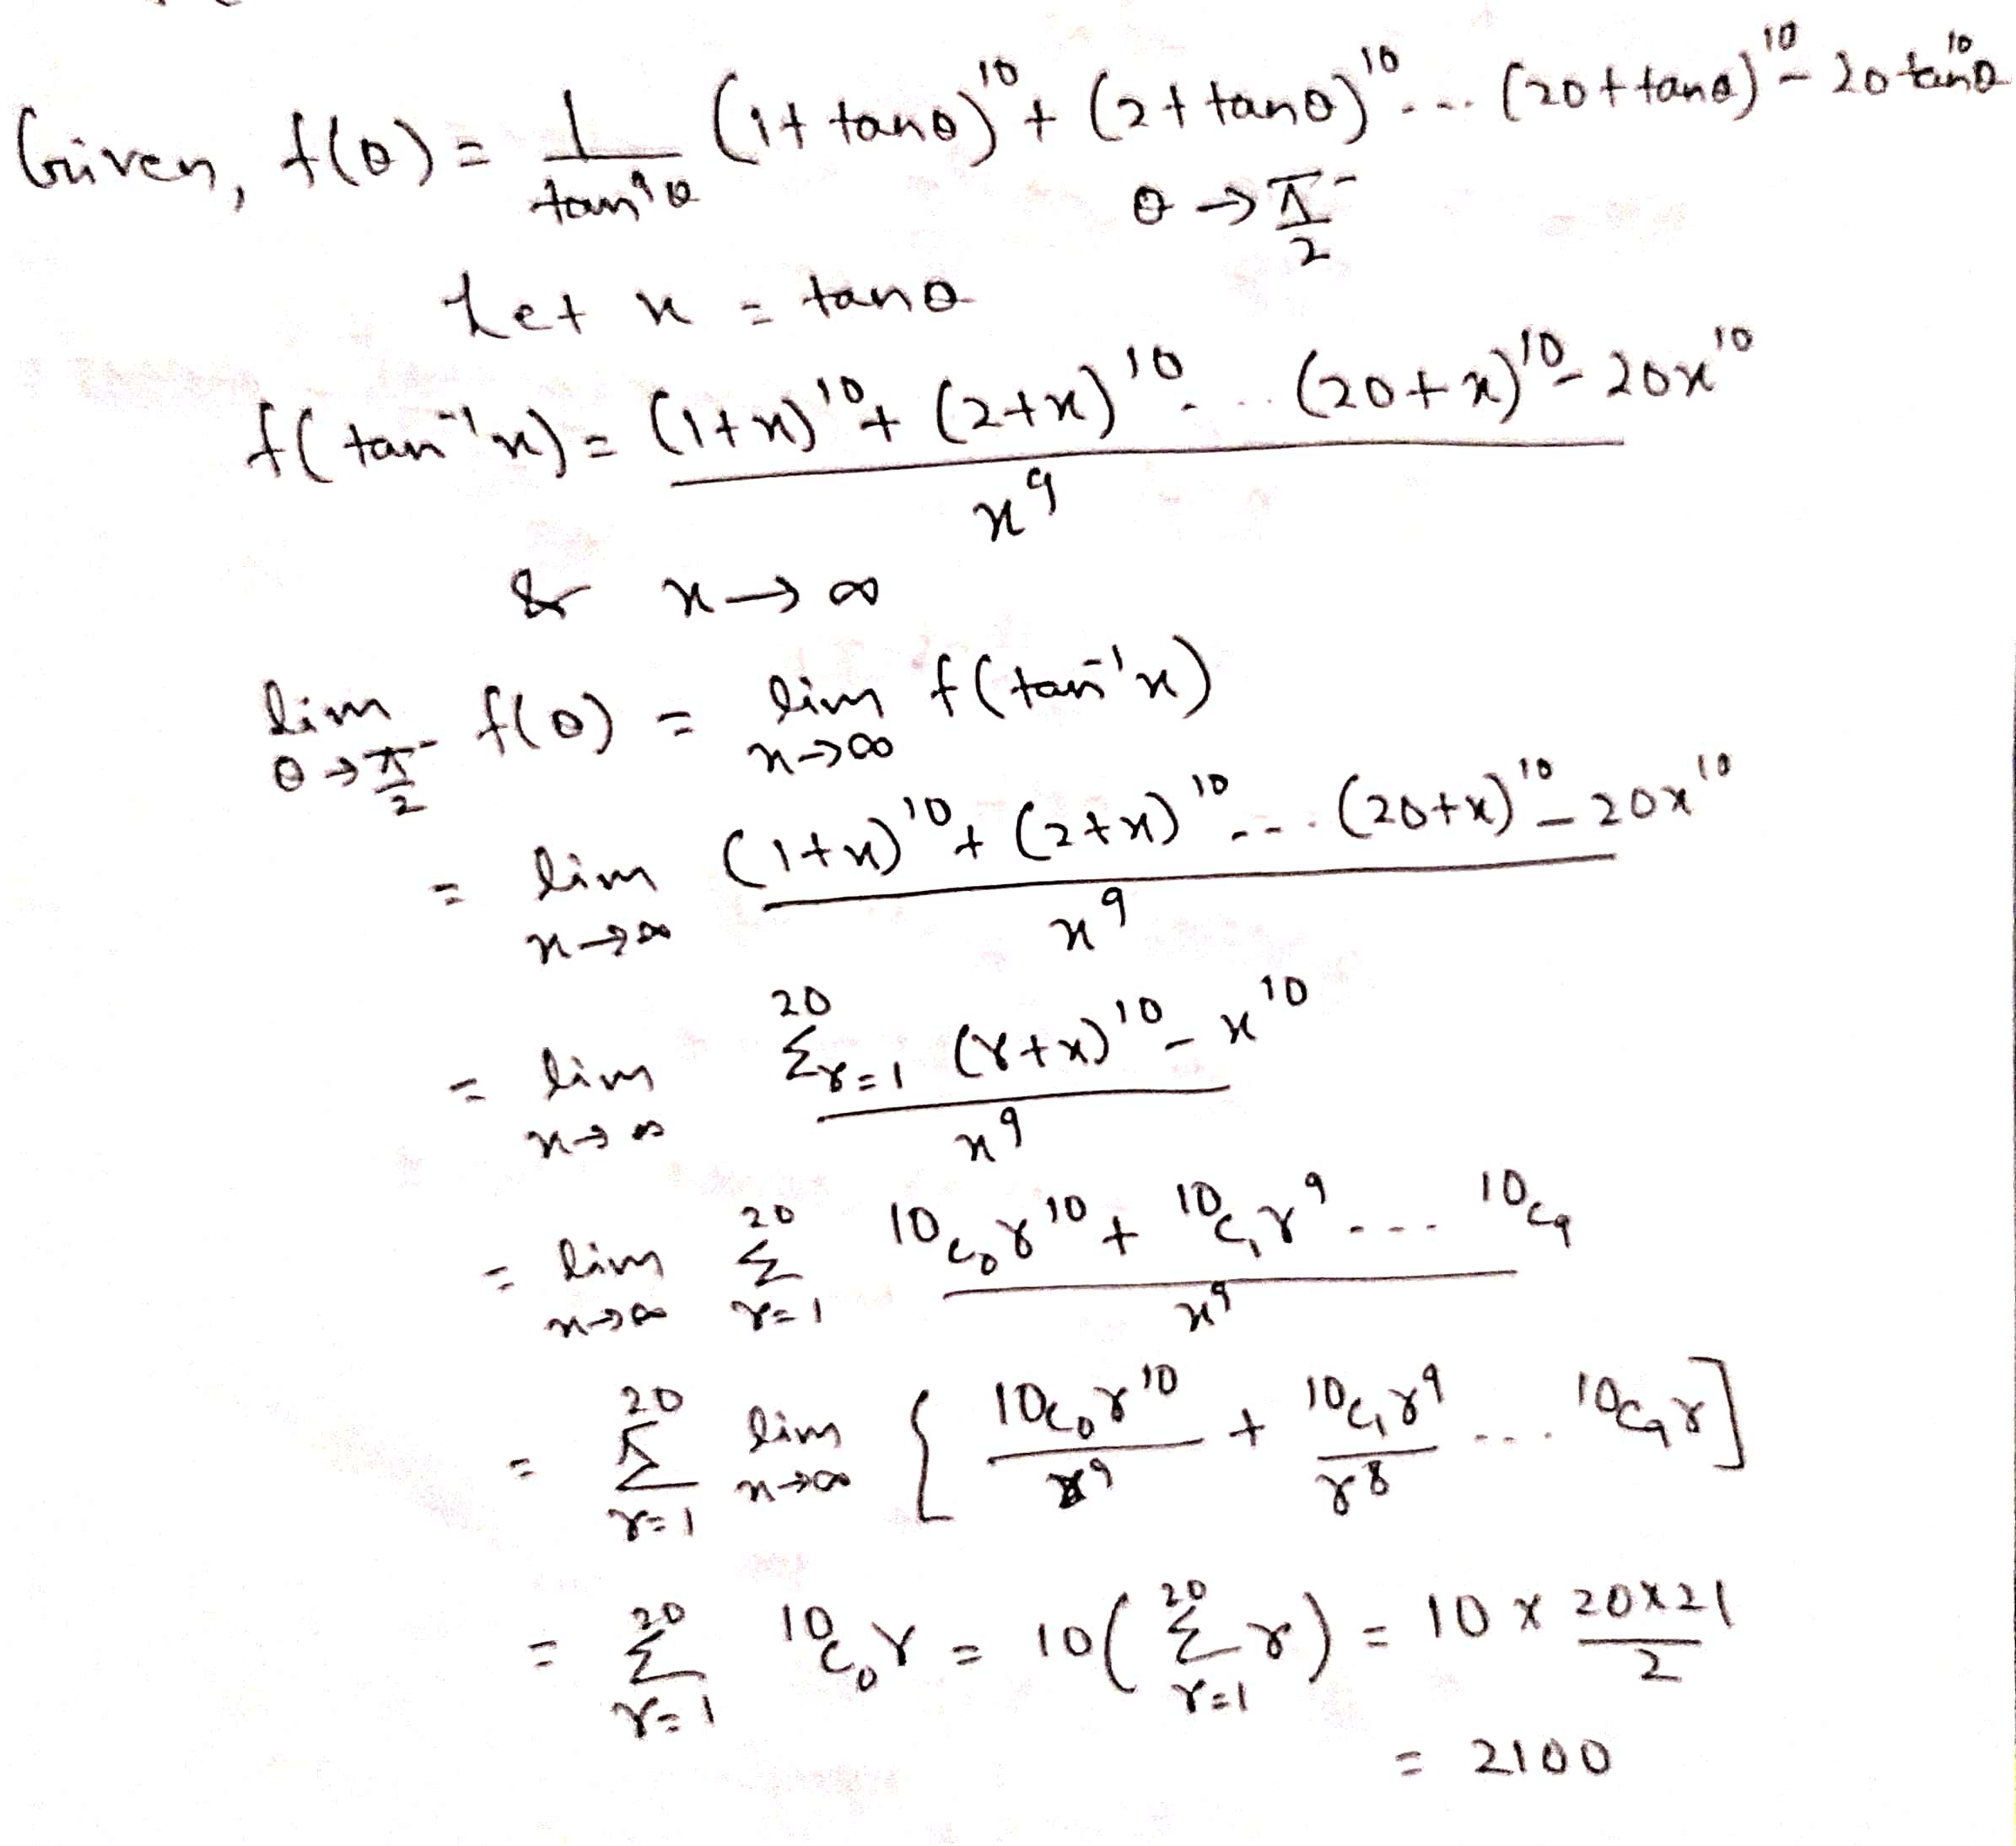 Given, f(θ) = 1/tan⁹θ (1+tanθ)¹⁰ + (2+tanθ)¹⁰ ... (20+tanθ)¹⁰ - 20 tan¹⁰θ
θ → π/2⁻
Let x = tanθ
f(tan⁻¹x) = ((1+x)¹⁰ + (2+x)¹⁰ ... (20+x)¹⁰ - 20x¹⁰)/x⁹
& x → ∞
lim θ→π/2⁻ f(θ) = lim x→∞ f(tan⁻¹x)
= lim x→∞ ((1+x)¹⁰ + (2+x)¹⁰ ... (20+x)¹⁰ - 20x¹⁰)/x⁹
= lim x→∞ (²⁰Σr=1 (r+x)¹⁰ - x¹⁰)/x⁹
= lim x→∞ ²⁰Σr=1 (¹⁰C₀r¹⁰ + ¹⁰C₁r⁹ ... ¹⁰C₉)/x⁹
= ²⁰Σr=1 lim x→∞ { ¹⁰C₀r¹⁰/x⁹ + ¹⁰C₁r⁹/r⁸ ... ¹⁰C₉r ]
= ²⁰Σr=1 ¹⁰C₀r = 10(²⁰Σr=1 r) = 10 × 20×21/2
= 2100